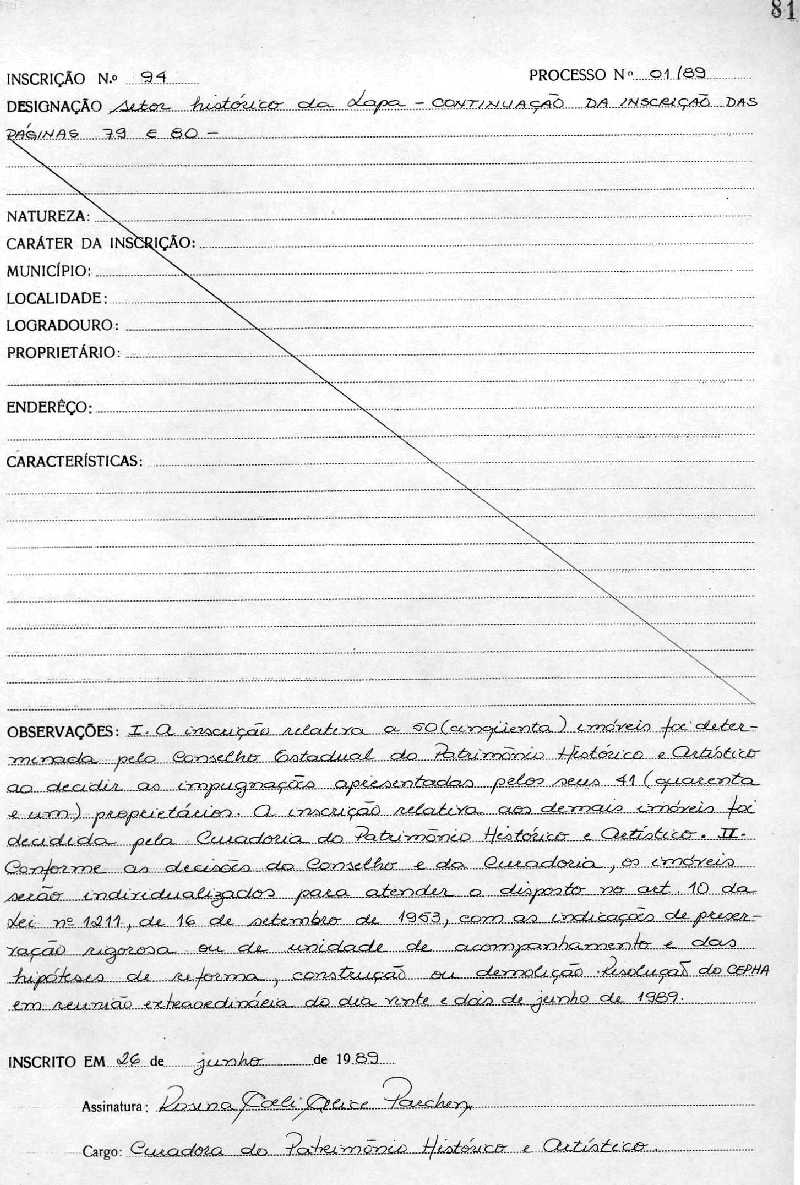 81
INSCRIÇÃO N.º 94 PROCESSO Nº 01/89
DESIGNAÇÃO setor histórico da Lapa - CONTINUAÇÃO DA INSCRIÇÃO DAS
PÁGINAS 79 E 80 -
NATUREZA:
CARÁTER DA INSCRIÇÃO:
MUNICÍPIO:
LOCALIDADE:
LOGRADOURO:
PROPRIETÁRIO:
ENDERÊÇO:
CARACTERÍSTICAS:
OBSERVAÇÕES: I. A inscrição relativa a 50 (cinqüenta) imóveis foi deter-
minada pelo Conselho Estadual do Patrimônio Histórico e Artístico
ao decidir as impugnações apresentadas pelos seus 41 (quarenta
e um) proprietários. A inscrição relativa aos demais imóveis foi
decidida pela Curadoria do Patrimônio Histórico e Artístico. II.
Conforme as decisões do Conselho e da Curadoria, os imóveis
serão individualizados para atender o disposto no art. 10 da
Lei nº 1211, de 16 de setembro de 1953, com as indicações de preser-
vação rigorosa ou de unidade de acompanhamento e das
hipóteses de reforma, construção ou demolição. Resolução do CEPHA
em reunião extraordinária do dia vinte e dois de junho de 1989.
INSCRITO EM 26 de junho de 1989
Assinatura: Rosina Parchen
Cargo: Curadora do Patrimônio Histórico e Artístico.